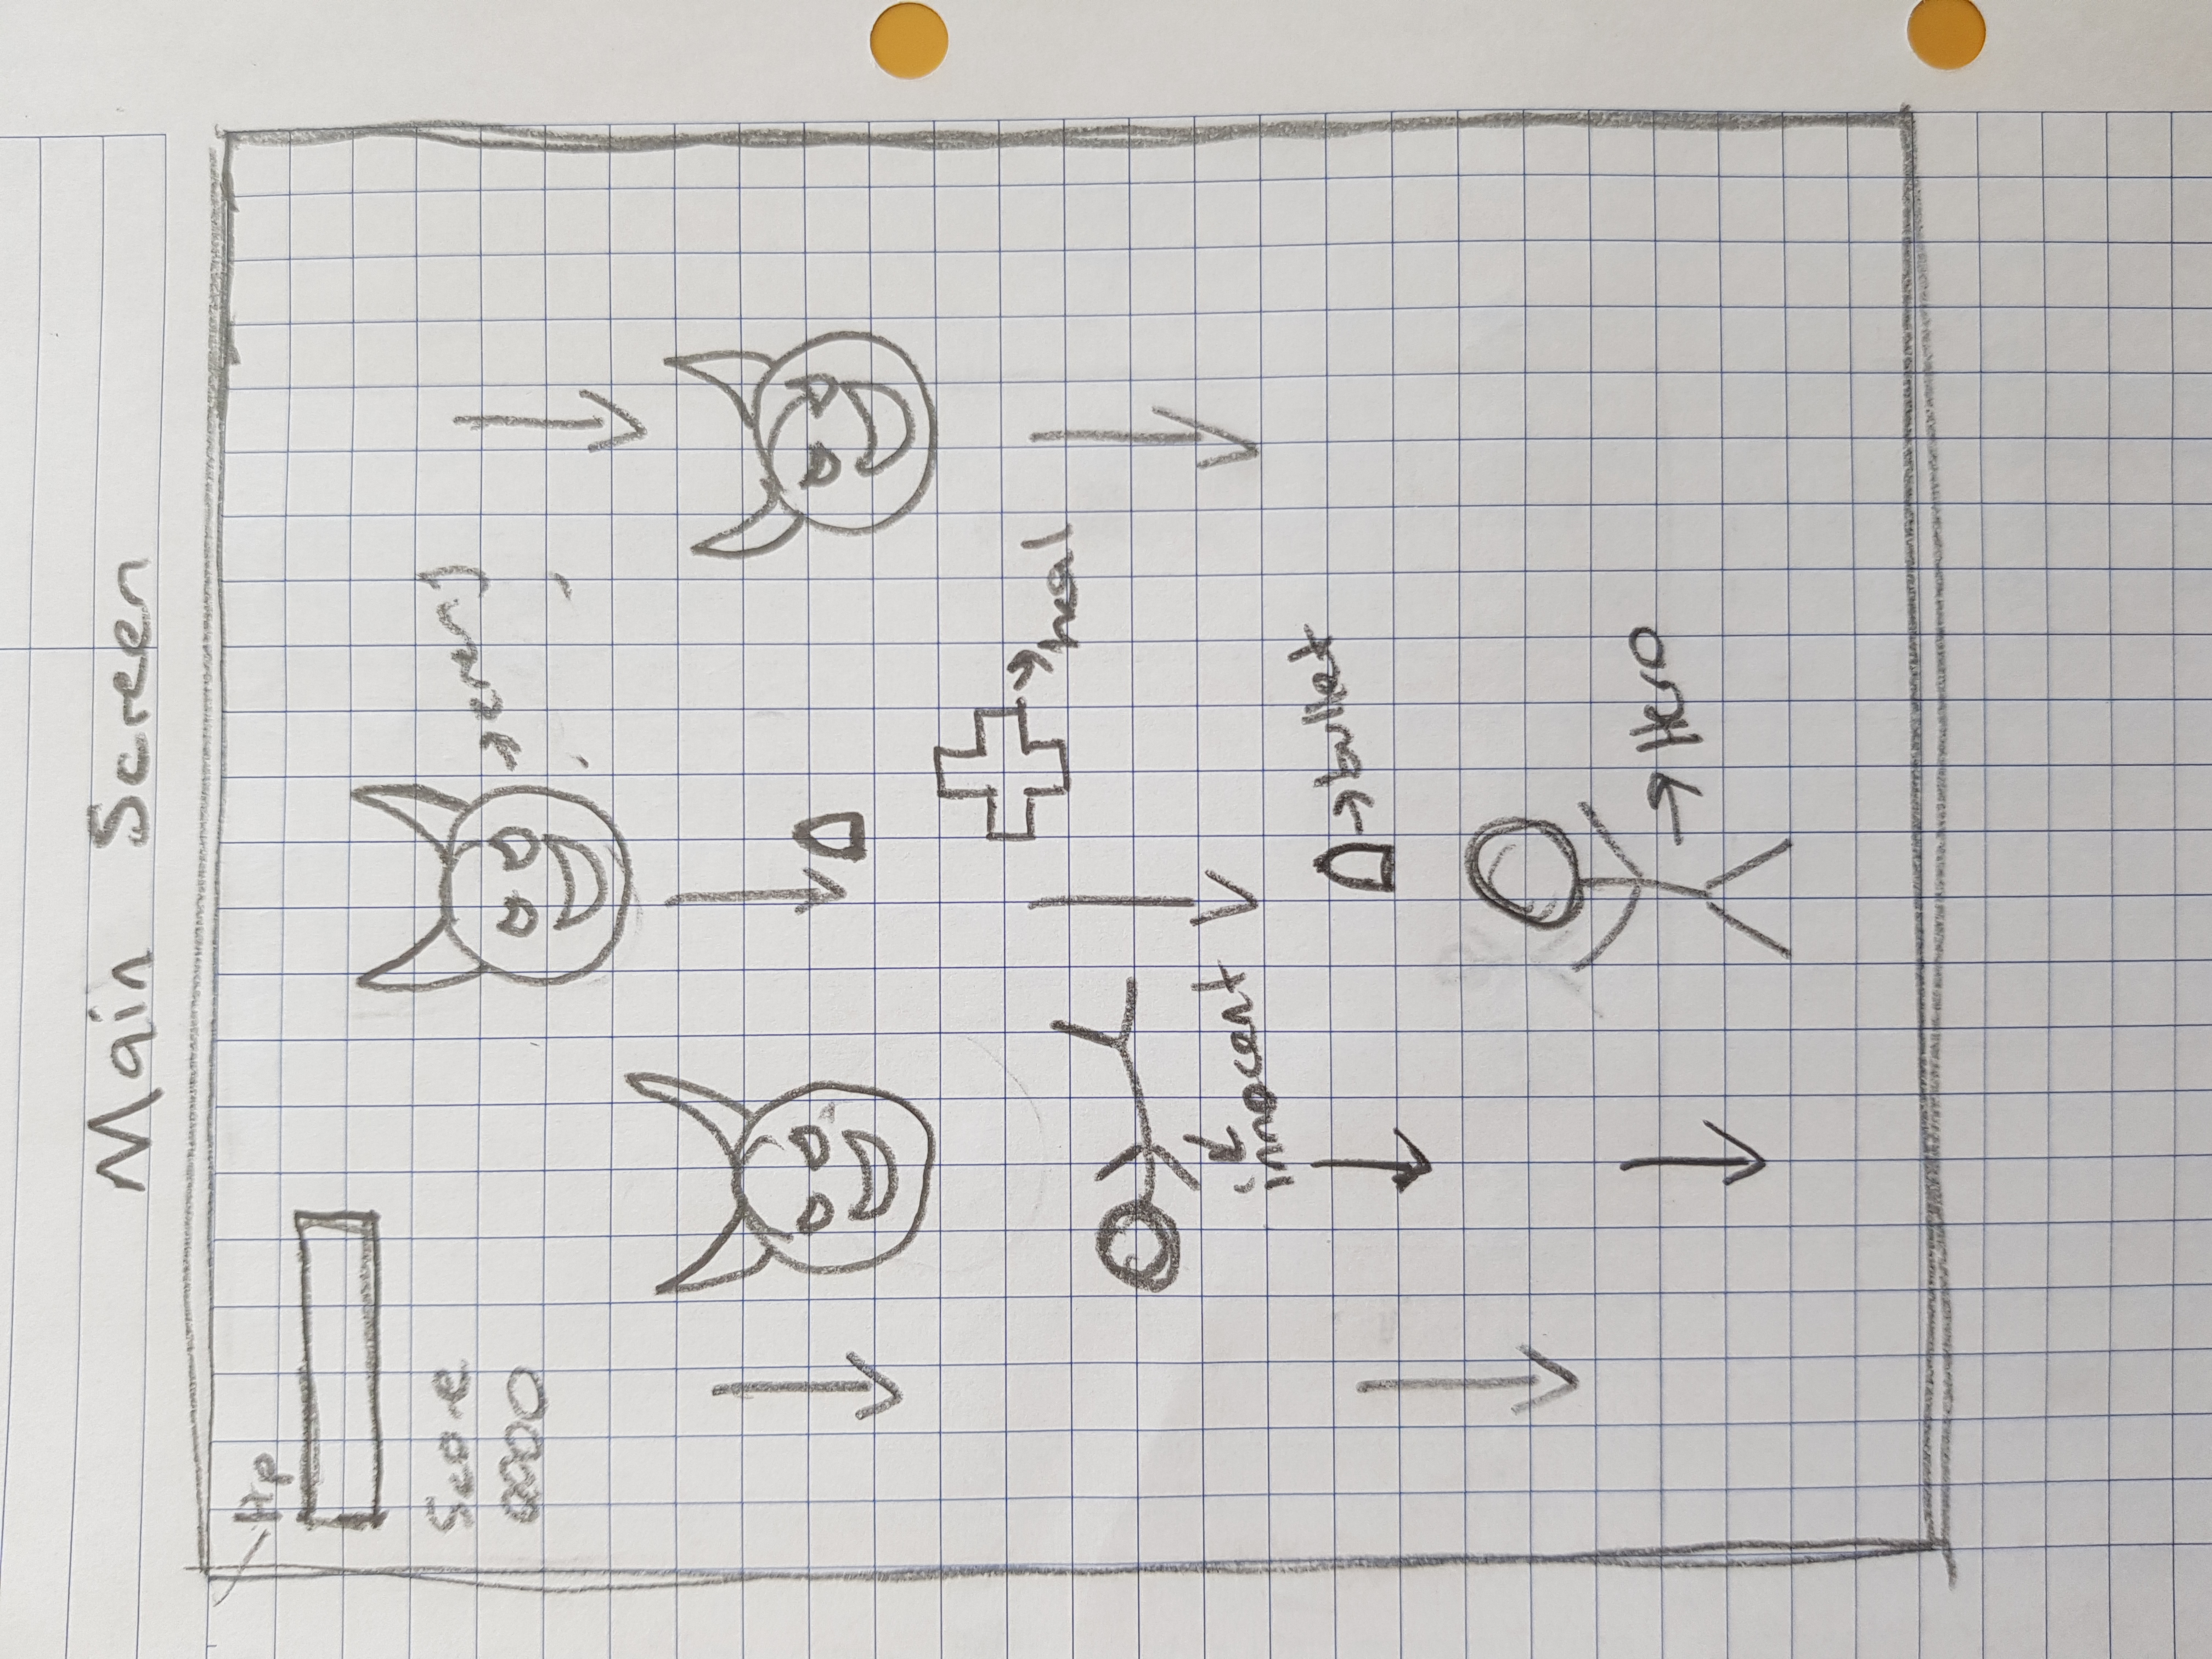 Main Screen
Hp
Score
0000
enemy
heal
innocent
bullet
Hero